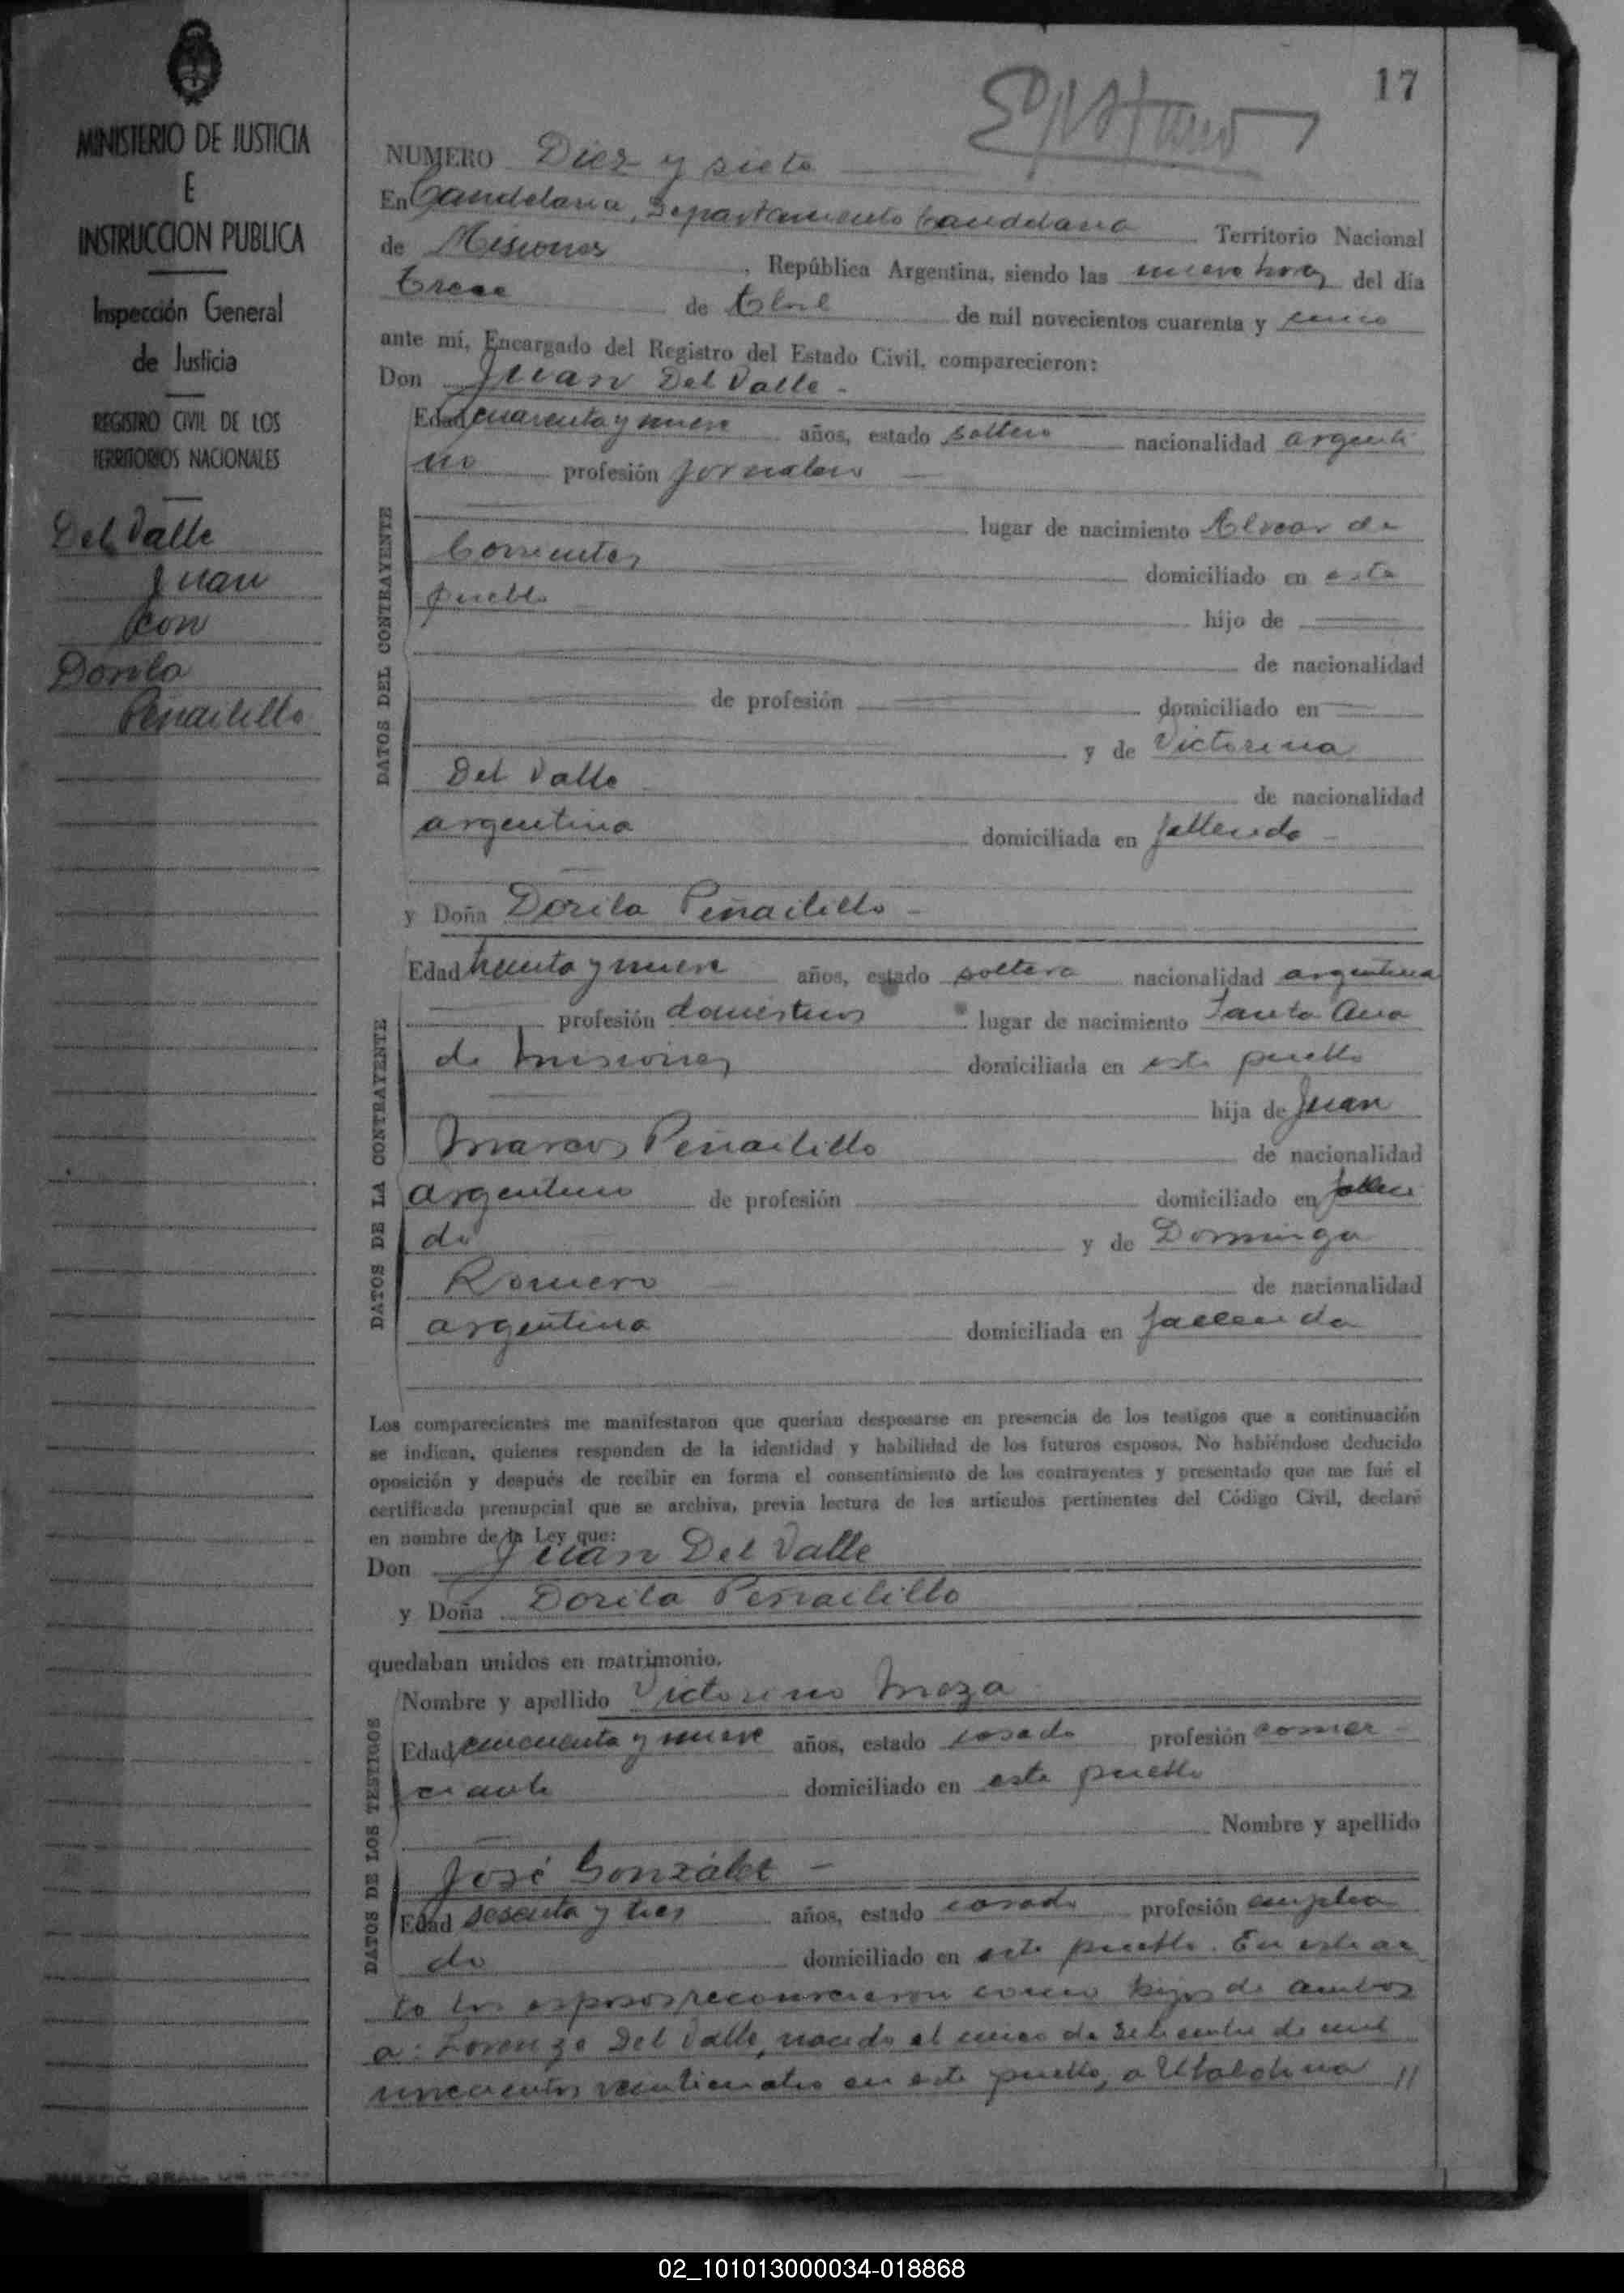 17
MINISTERIO DE JUSTICIA
E
INSTRUCCION PUBLICA
Inspección General
de Justicia
REGISTRO CIVIL DE LOS
TERRITORIOS NACIONALES
Del Valle
Juan
con
Dorila
Peñailillo
NUMERO Diez y siete
En Candelaria, Departamento Candelaria Territorio Nacional
de Misiones, República Argentina, siendo las nueve horas del día
trece de Abril de mil novecientos cuarenta y cinco
ante mí, Encargado del Registro del Estado Civil, comparecieron:
Don Juan Del Valle
DATOS DEL CONTRAYENTE
Edad cuarenta y nueve años, estado soltero nacionalidad argenti
no profesión jornalero
lugar de nacimiento Alvear de
Corrientes domiciliado en este
pueblo hijo de
de nacionalidad
de profesión domiciliado en
y de Victorina
Del Valle de nacionalidad
argentina domiciliada en fallecida
y Doña Dorila Peñailillo
DATOS DE LA CONTRAYENTE
Edad treinta y nueve años, estado soltera nacionalidad argentina
profesión domésticos lugar de nacimiento Santa Ana
de Misiones domiciliada en este pueblo
hija de Juan
Marcos Peñailillo de nacionalidad
argentino de profesión domiciliado en falleci
do y de Dominga
Romero de nacionalidad
argentina domiciliada en fallecida
Los comparecientes me manifestaron que querían desposarse en presencia de los testigos que a continuación
se indican, quienes responden de la identidad y habilidad de los futuros esposos. No habiéndose deducido
oposición y después de recibir en forma el consentimiento de los contrayentes y presentado que me fué el
certificado prenupcial que se archiva, previa lectura de los artículos pertinentes del Código Civil, declaré
en nombre de la Ley que:
Don Juan Del Valle
y Doña Dorila Peñailillo
quedaban unidos en matrimonio.
DATOS DE LOS TESTIGOS
Nombre y apellido Victorino Meza
Edad cincuenta y nueve años, estado casado profesión comer
ciante domiciliado en este pueblo
Nombre y apellido
José González
Edad sesenta y tres años, estado casado profesión emplea
do domiciliado en este pueblo. En este ac
to los esposos reconocieron como hijos de ambos
a: Lorenzo Del Valle, nacido el cinco de Setiembre de mil
novecientos veinticuatro en este pueblo, a Ubaldina //
02_101013000034-018868